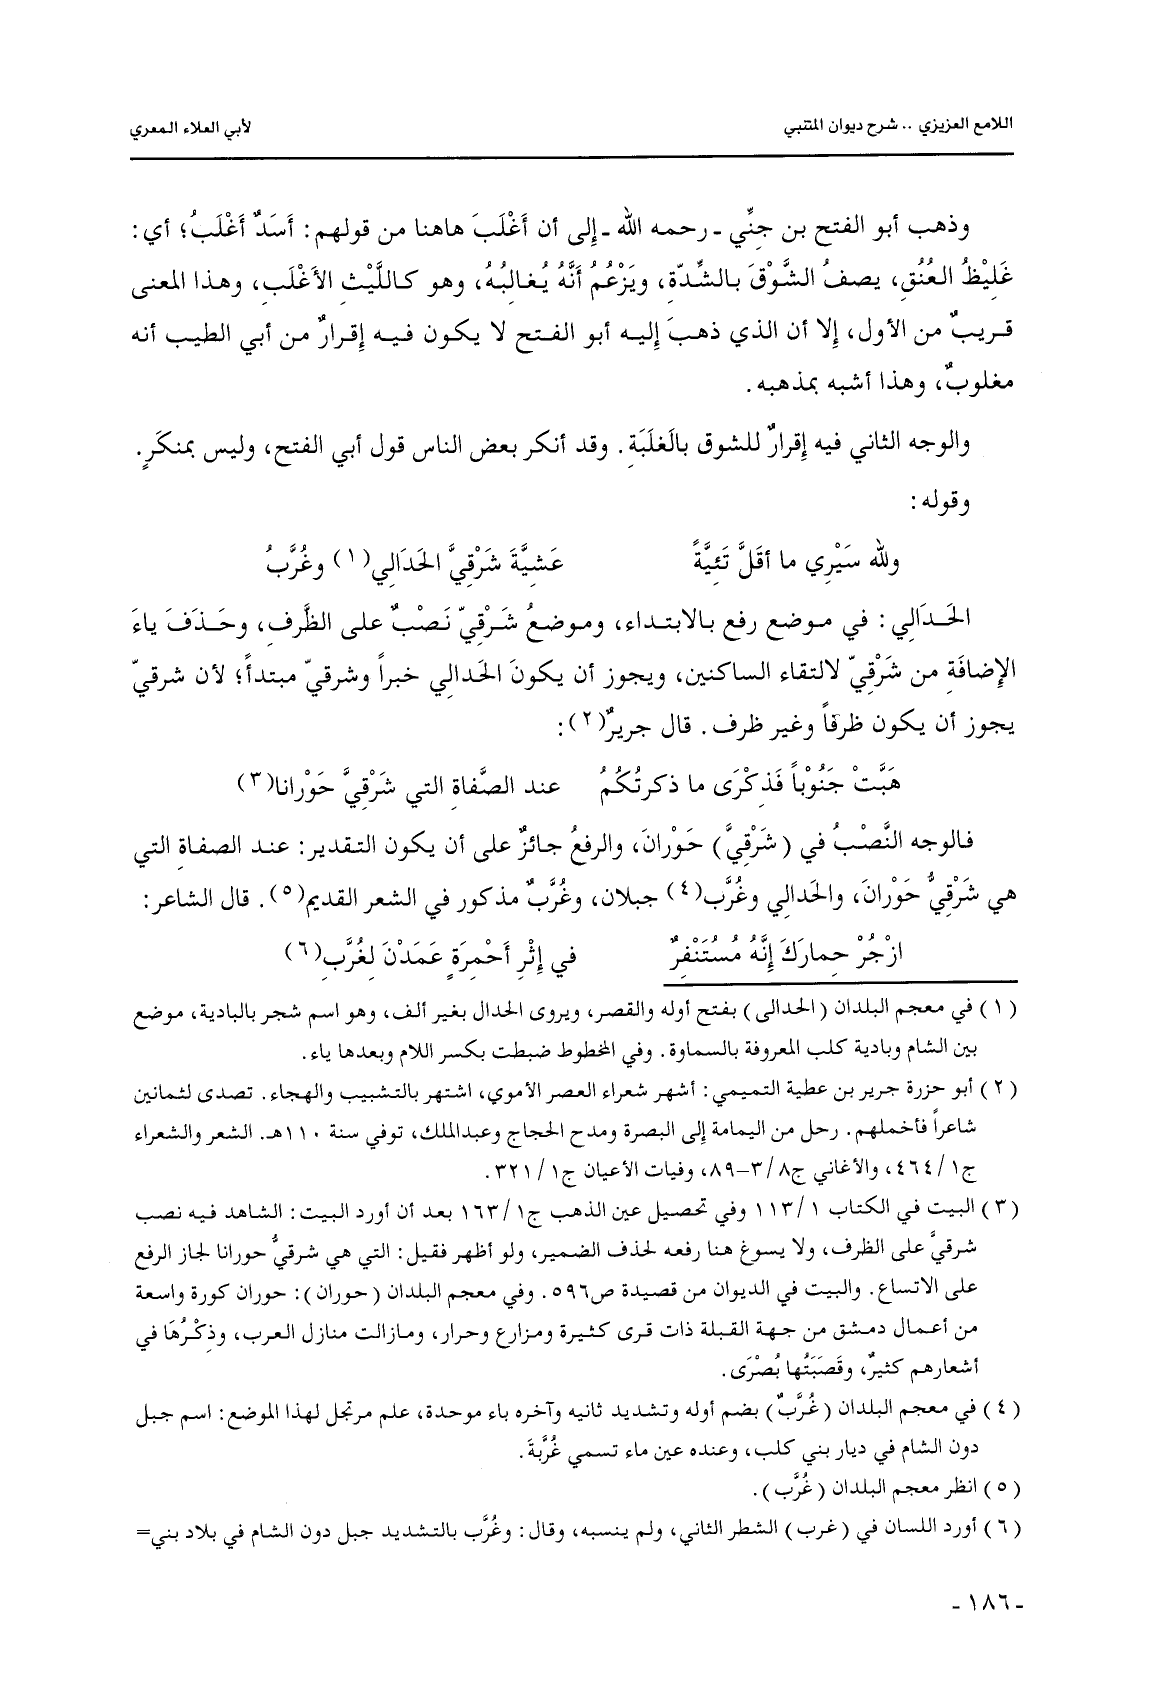 اللامع العزيزي .. شرح ديوان المتنبي
لأبي العلاء المعري
وذهب أبو الفتح بن جنِّي ـ رحمه الله ـ إلى أن أَغْلَبَ هاهنا من قولهم: أَسَدٌ أَغْلَبُ؛ أي:
غَلِيْظُ العُنُقِ، يصفُ الشَّوْقَ بالشَّدّةِ، ويَزْعُمُ أَنَّهُ يُغالبُهُ، وهو كاللَّيْثِ الأَغْلَبِ، وهذا المعنى
قريبٌ من الأول، إلا أن الذي ذهبَ إليه أبو الفتح لا يكون فيه إقرارٌ من أبي الطيب أنه
مغلوبٌ، وهذا أشبه بمذهبه.
والوجه الثاني فيه إقرارٌ للشوق بالغَلَبَةِ. وقد أنكر بعض الناس قول أبي الفتح، وليس بمنكَرٍ.
وقوله:
ولله سَيْرِي ما أقَلَّ تَئِيَّةً عَشِيَّةَ شَرْقِيَّ الحَدَالِي(١) وغُرَّبُ
الحَدَالِي: في موضع رفع بالابتداء، وموضعُ شَرْقِيّ نَصْبٌ على الظَّرفِ، وحَذَفَ ياءَ
الإضافَةِ من شَرْقِيّ لالتقاء الساكنين، ويجوز أن يكونَ الحَدالي خبراً وشرقيّ مبتدأً؛ لأن شرقيّ
يجوز أن يكون ظرفاً وغير ظرف. قال جريرٌ(٢):
هَبَّتْ جَنُوْباً فَذِكْرَى ما ذكرتُكُمُ عند الصَّفاةِ التي شَرْقِيَّ حَوْرانا(٣)
فالوجه النَّصْبُ في (شَرْقِيَّ) حَوْرانَ، والرفعُ جائزٌ على أن يكون التقدير: عند الصفاةِ التي
هي شَرْقِيُّ حَوْرانَ، والحَدالي وغُرَّب(٤) جبلان، وغُرَّبٌ مذكور في الشعر القديم(٥). قال الشاعر:
ازْجُرْ حِمارَكَ إنَّهُ مُسْتَنْفِرٌ في إثْرِ أَحْمِرَةٍ عَمَدْنَ لِغُرَّبِ(٦)
(١) في معجم البلدان (الحدالى) بفتح أوله والقصر، ويروى الحدال بغير ألف، وهو اسم شجر بالبادية، موضع
بين الشام وبادية كلب المعروفة بالسماوة. وفي المخطوط ضبطت بكسر اللام وبعدها ياء.
(٢) أبو حزرة جرير بن عطية التميمي: أشهر شعراء العصر الأموي، اشتهر بالتشبيب والهجاء. تصدى لثمانين
شاعراً فأخملهم. رحل من اليمامة إلى البصرة ومدح الحجاج وعبدالملك، توفي سنة ١١٠هـ. الشعر والشعراء
ج١/٤٦٤، والأغاني ج٨/٣-٨٩، وفيات الأعيان ج١/٣٢١.
(٣) البيت في الكتاب ١/١١٣ وفي تحصيل عين الذهب ج١/١٦٣ بعد أن أورد البيت: الشاهد فيه نصب
شرقيَّ على الظرف، ولا يسوغ هنا رفعه لحذف الضمير، ولو أظهر فقيل: التي هي شرقيُّ حورانا لجاز الرفع
على الاتساع. والبيت في الديوان من قصيدة ص٥٩٦. وفي معجم البلدان (حوران): حوران كورة واسعة
من أعمال دمشق من جهة القبلة ذات قرى كثيرة ومزارع وحرار، ومازالت منازل العرب، وذِكْرُهَا في
أشعارهم كثيرٌ، وقَصَبَتُها بُصْرَى.
(٤) في معجم البلدان (غُرَّبٌ) بضم أوله وتشديد ثانيه وآخره باء موحدة، علم مرتجل لهذا الموضع: اسم جبل
دون الشام في ديار بني كلب، وعنده عين ماء تسمي غُرَّبةَ.
(٥) انظر معجم البلدان (غُرَّب).
(٦) أورد اللسان في (غرب) الشطر الثاني، ولم ينسبه، وقال: وغُرَّب بالتشديد جبل دون الشام في بلاد بني=
- ١٨٦ -